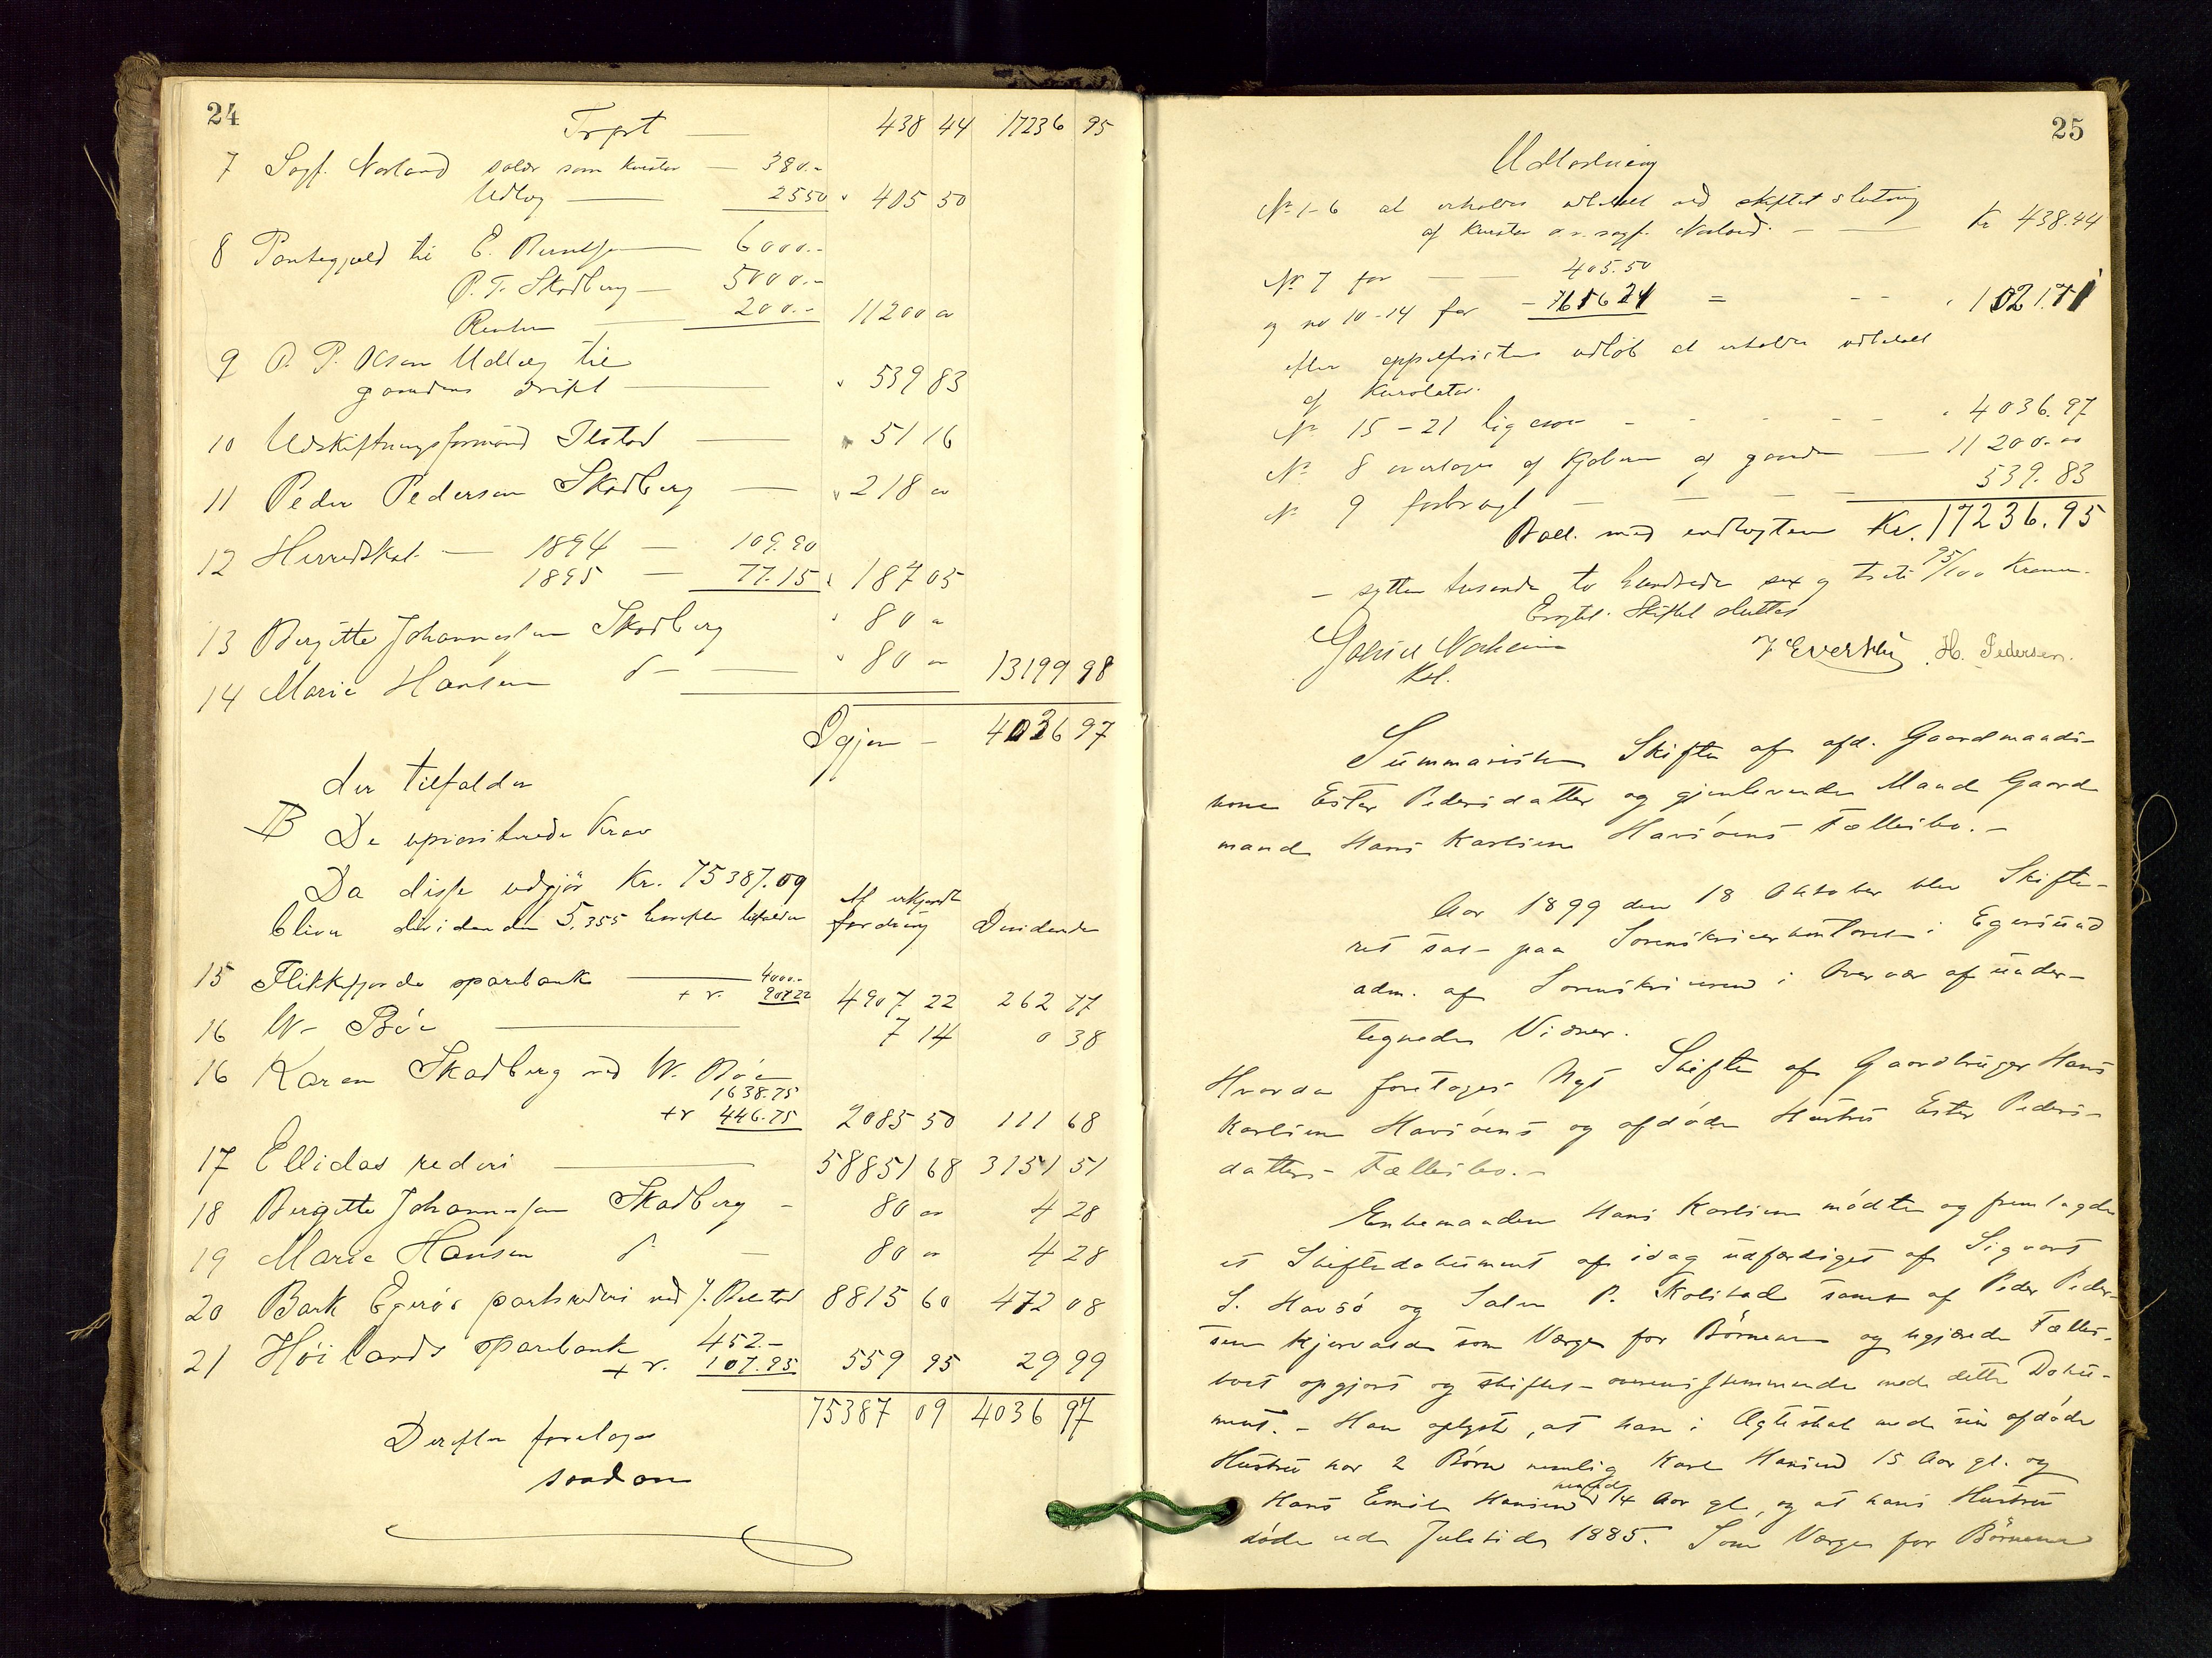 24
Trprt — 438 44 17236 95
7 Sagf. Norland salær som kurator — 380.-
Udlæg — 25 50 " 405 50
8 Pantegjæld til E. Berntsen — 6000.-
P. T. Skadberg — 5000.-
Renter — 200.- 11200 00
9 O. P. Olsen Udlæg til
gaardens drift — " 539 83
10 Udskiftningsformand Ilstad — " 51 16
11 Peder Pedersen Skadberg — " 218 00
12 Herredskat — 1894 — 109.90
1895 — 77.15 " 187 05
13 Bergitte Johannessen Skadberg " 80 "
14 Marie Hansen d — " 80 " 13199 98
Igjen — 4036 97
der tilfalder
B De uprioriterede krav
Da disse udgjør Kr. 75387.09
bliver dividenden 5,355 hvorefter tilfalder
Af erkjendt fordring Dividende
15 Flekkefjords sparebank — 4000.-
+ r. 907 22 4907 22 262 77
16 W. Bøe — 7 14 0 38
16 Karen Skadberg ved W. Bøe
1638.75
+ r 446.75 2085 50 111 68
17 Ellidas rederi — 58851 68 3151 51
18 Bergitte Johannessen Skadberg - 80 00 4 28
19 Marie Hansen d — 80 " 4 28
20 Bark Egerøs partsrederi ved J. 8815 60 472 08
21 Høilands sparebank 452.-
+ r. 107.95 559 95 29 99
75387 09 4036 97
Derefter foretoges
saadan
25
Udlodning
No 1-6 at erholde udbetalt ved skiftets slutning
af kurator o.r.sagf. Norland. — Kr 438.44
No 7 for — 405.50
og no 10-14 for - 616 21 = - - " 1021.71
efter appelfristens udløb at erholde udbetalt
af kurator.
No 15-21 ligesom - - - - " 4036.97
No 8 overtages af kjøberen af gaarden — 11200.00
No 9 forbrugt — — — 539.83
Ball. med indtægten Kr. 17236.95
- sytten tusende to hundrede sex og treti 95/100 Kroner.
Eragtet. Skiftet sluttes
Gabriel Norheim
Kst.
J Everth H. Pedersen.
Summarisk Skifte af afd. Gaardmands-
kone Ester Pedersdatter og gjenlevende Mand Gaard
mand Hans Karlsen Havsøens Fællesbo. -
Aar 1899 den 18 Oktober blev Skifte-
ret sat paa Sorenskriverkontoret i Egersund
adm. af Sorenskriveren i Overvær af under-
tegnede Vidner.
Hvorda foretoges Nyt Skifte af Gaardbruger Hans
Karlsen Havsøens og afdøde Hustru Ester Peders-
datters Fællesbo. -
Enkemanden Hans Karlsen mødte og fremlagde
et Skiftedokument af idag udfærdiget af Sigvart
S. Havsø og Salve P. Kolstad samt af Peder Peder-
sen Kjervald som Værge for Børnene og begjærede Fælles-
boet opgjort og skiftet overensstemmende med dette Doku-
ment. - Han oplyste, at han i Ægteskab med sin afdøde
Hustru har 2 Børn nemlig Karl Hansen 15 Aar gl. og
Hans Emil Hansen 14 Aar gl., og at hans Hustru
døde ved Juletider 1885. Som Værge for Børnene